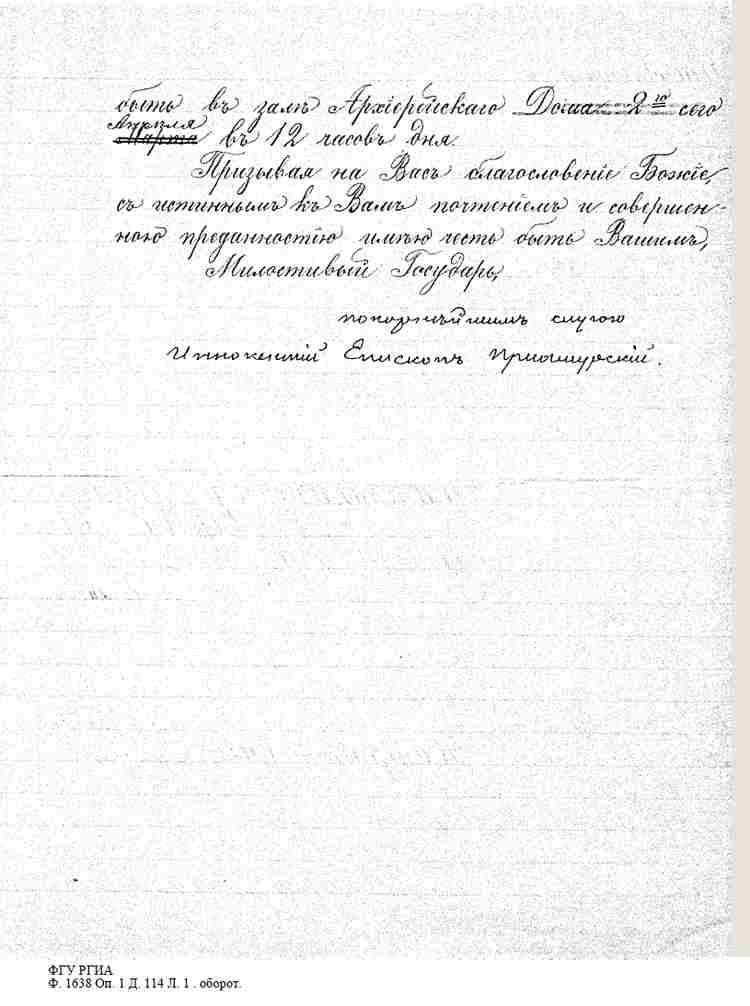 быть въ залѣ Архіерейскаго Дома 2го сего
Апрѣля
Марта въ 12 часовъ дня.
Призывая на Васъ благословеніе Божіе,
съ истиннымъ къ Вамъ почтеніемъ и совершен-
ною преданностію имѣю честь быть Вашимъ,
Милостивый Государь,
покорнѣйшимъ слугою
Иннокентій Епископъ Приамурскій.
ФГУ РГИА
Ф. 1638 Оп. 1 Д. 114 Л. 1 . оборот.